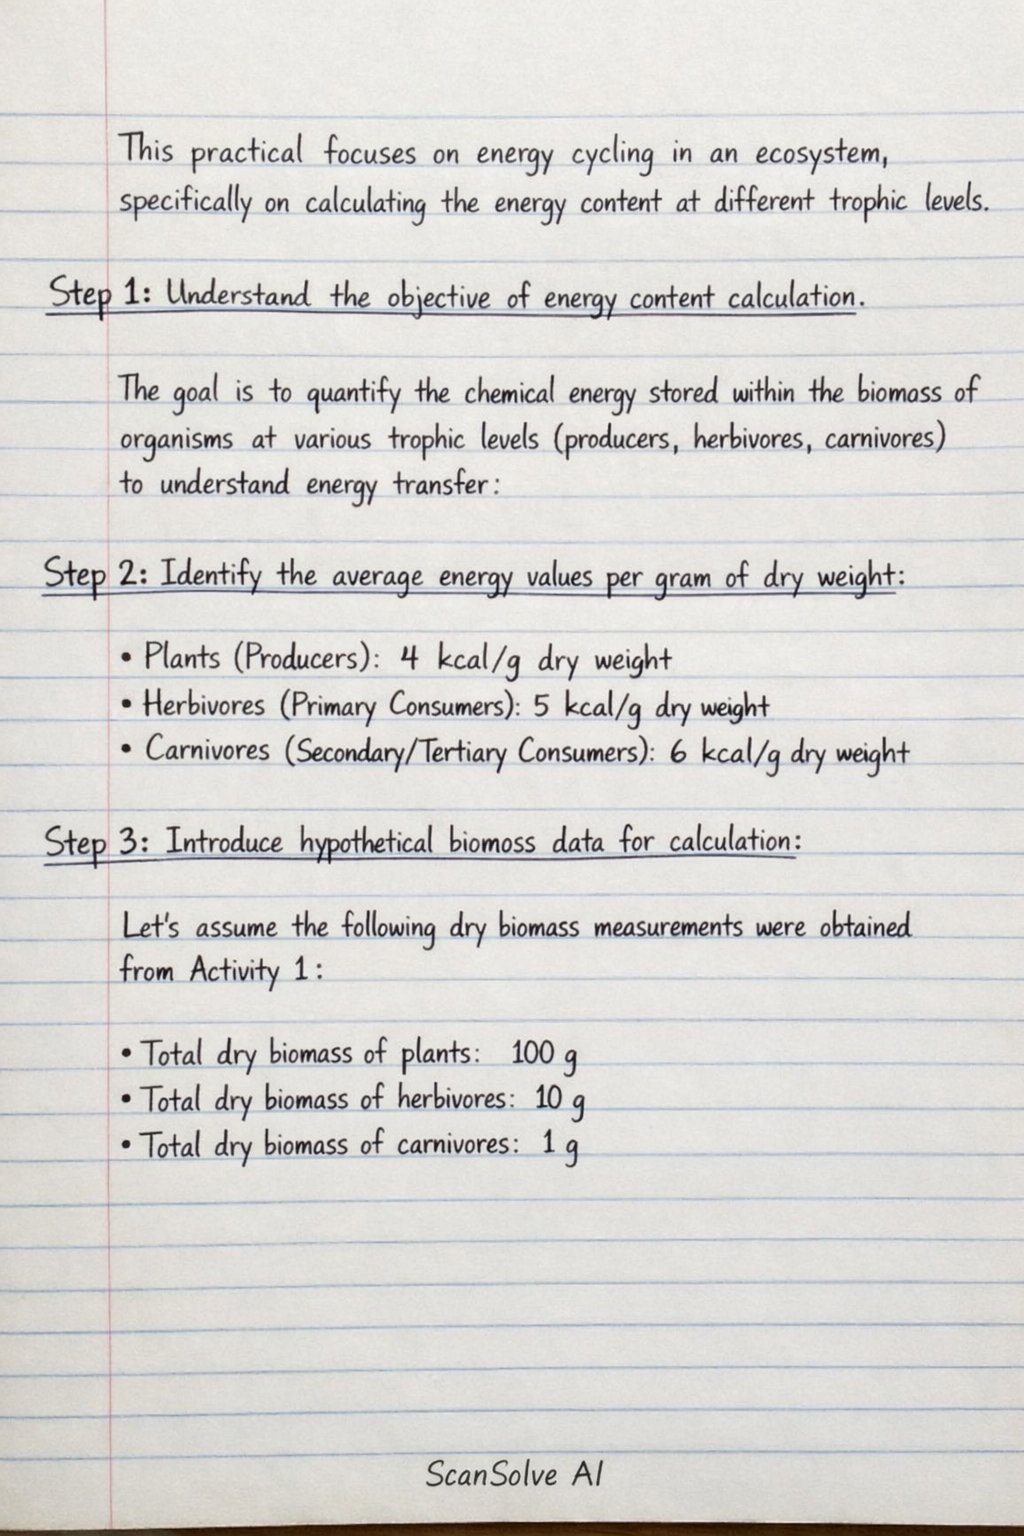 This practical focuses on energy cycling in an ecosystem,
specifically on calculating the energy content at different trophic levels.
Step 1: Understand the objective of energy content calculation.
The goal is to quantify the chemical energy stored within the biomass of
organisms at various trophic levels (producers, herbivores, carnivores)
to understand energy transfer:
Step 2: Identify the average energy values per gram of dry weight:
• Plants (Producers): 4 kcal/g dry weight
• Herbivores (Primary Consumers): 5 kcal/g dry weight
• Carnivores (Secondary/Tertiary Consumers): 6 kcal/g dry weight
Step 3: Introduce hypothetical biomoss data for calculation:
Let's assume the following dry biomass measurements were obtained
from Activity 1:
• Total dry biomass of plants: 100 g
• Total dry biomass of herbivores: 10 g
• Total dry biomass of carnivores: 1 g
ScanSolve AI